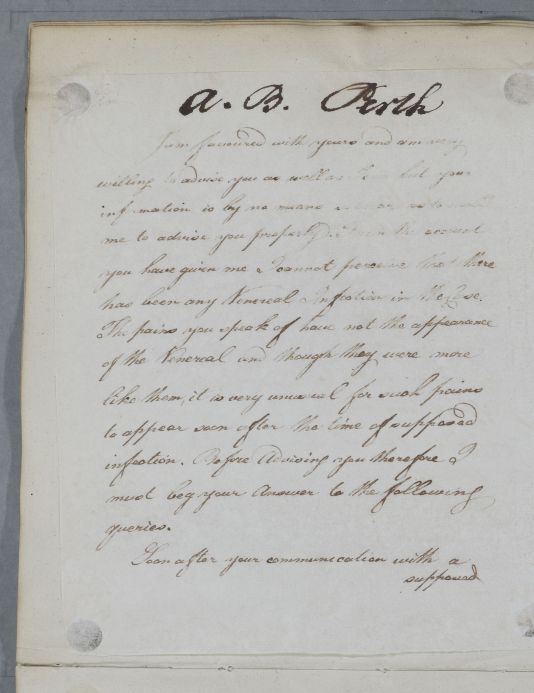 A. B. Perth
I am favoured with yours and am very
willing to advise you as well as I can but your
information is by no means
me to advise you properly. From the account
you have given me I cannot perceive that there
has been any Venereal Infection in the Case.
The pains you speak of have not the appearance
of the Venereal and though they were more
like them, it is very unusual for such pains
to appear soon after the time of supposed
infection. Before Advising you therefore I
must beg your Answer to the following
queries.
Soon after your communication with a
supposed